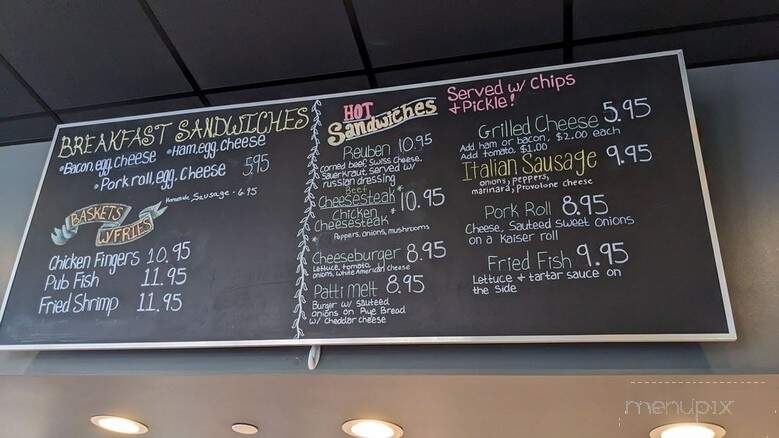 BREAKFAST SANDWICHES
•Bacon, egg, cheese •Ham, egg, cheese
•Pork roll, egg, cheese 5.95
Homemade Sausage - 6.95
BASKETS
W/FRIES
Chicken Fingers 10.95
Pub Fish 11.95
Fried Shrimp 11.95
HOT
Sandwiches
Served w/ Chips
+ Pickle!
Reuben 10.95
corned beef, Swiss cheese,
Sauerkraut, served w/
russian dressing
Beef
Cheesesteak* 10.95
Chicken
Cheesesteak*
* Peppers, onions, mushrooms
Cheeseburger 8.95
Lettuce, tomato,
onions, White American cheese
Patti Melt 8.95
Burger w/ Sauteed
onions on Rye Bread
w/ Cheddar cheese
Grilled Cheese 5.95
Add ham or bacon, $2.00 each
Add tomato, $1.00
Italian Sausage 9.95
onions, peppers,
marinara, Provolone cheese
Pork Roll 8.95
Cheese, Sauteed sweet onions
on a Kaiser roll
Fried Fish 9.95
Lettuce + tartar sauce on
the side
menupix